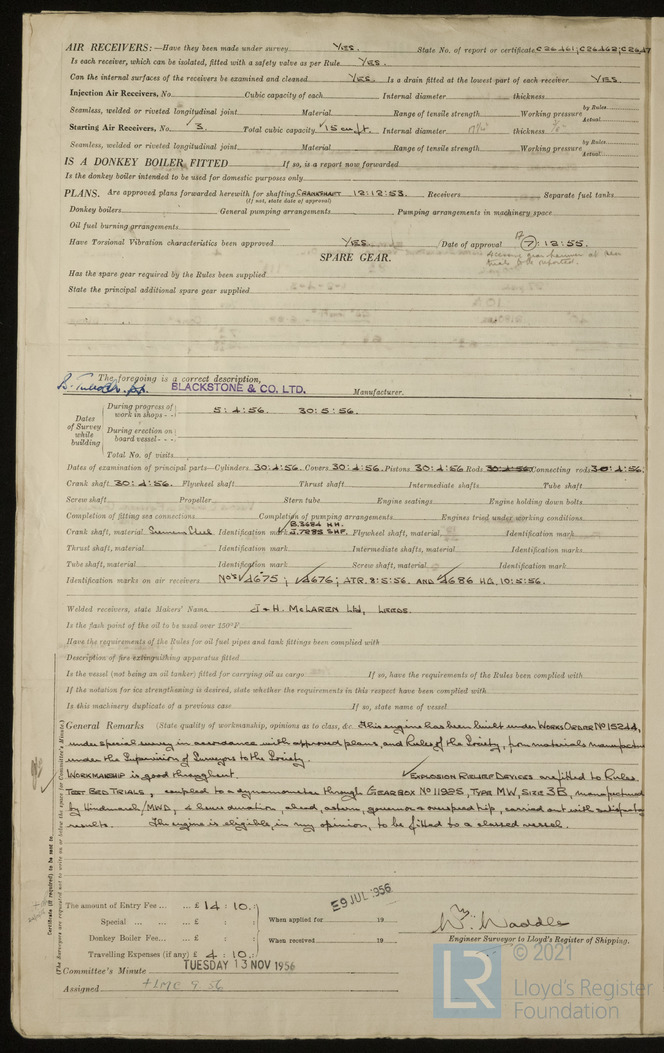 AIR RECEIVERS:—Have they been made under survey YES. State No. of report or certificate C26461; C26462; C2647
Is each receiver, which can be isolated, fitted with a safety valve as per Rule YES.
Can the internal surfaces of the receivers be examined and cleaned YES. Is a drain fitted at the lowest part of each receiver YES.
Injection Air Receivers, No. Cubic capacity of each Internal diameter thickness
Seamless, welded or riveted longitudinal joint Material Range of tensile strength Working pressure by Rules Actual
Starting Air Receivers, No. 3. Total cubic capacity 15 cu.ft. Internal diameter thickness
Seamless, welded or riveted longitudinal joint Material Range of tensile strength Working pressure by Rules Actual
IS A DONKEY BOILER FITTED If so, is a report now forwarded
Is the donkey boiler intended to be used for domestic purposes only
PLANS. Are approved plans forwarded herewith for shafting CRANKSHAFT 12:12:53. Receivers Separate fuel tanks
(If not, state date of approval)
Donkey boilers General pumping arrangements Pumping arrangements in machinery space
Oil fuel burning arrangements
Have Torsional Vibration characteristics been approved YES Date of approval 17 7:12:55.
SPARE GEAR.
Has the spare gear required by the Rules been supplied
State the principal additional spare gear supplied
The foregoing is a correct description,
BLACKSTONE & CO. LTD. Manufacturer.
Dates of Survey while building
During progress of work in shops - - 5:4:56. 30:5:56.
During erection on board vessel - - -
Total No. of visits
Dates of examination of principal parts—Cylinders 30:4:56. Covers 30:4:56. Pistons 30:4:56 Rods 30:4:56 Connecting rods 30:4:56.
Crank shaft 30:4:56. Flywheel shaft Thrust shaft Intermediate shafts Tube shaft
Screw shaft Propeller Stern tube Engine seatings Engine holding down bolts
Completion of fitting sea connections Completion of pumping arrangements Engines tried under working conditions
Crank shaft, material Siemens Steel Identification mark B.3684 H.H. J.7285 SHF. Flywheel shaft, material Identification mark
Thrust shaft, material Identification mark Intermediate shafts, material Identification marks
Tube shaft, material Identification mark Screw shaft, material Identification mark
Identification marks on air receivers Nos 4675; 4676; ATR. 8:5:56. AND 4686 HG. 10:5:56.
Welded receivers, state Makers' Name J & H. McLAREN Ltd, LEEDS.
Is the flash point of the oil to be used over 150°F
Have the requirements of the Rules for oil fuel pipes and tank fittings been complied with
Description of fire extinguishing apparatus fitted
Is the vessel (not being an oil tanker) fitted for carrying oil as cargo If so, have the requirements of the Rules been complied with
If the notation for ice strengthening is desired, state whether the requirements in this respect have been complied with
Is this machinery duplicate of a previous case If so, state name of vessel
General Remarks (State quality of workmanship, opinions as to class, &c. This engine has been built under WORKS ORDER No 15244,
under special survey in accordance with approved plans, and Rules of the Society, from materials manufactu
under the Supervision of Surveyors to the Society.
WORKMANSHIP is good throughout. EXPLOSION RELIEF DEVICES are fitted to Rules.
TEST BED TRIALS, coupled to a dynamometer through GEARBOX No 11985, TYPE MW, SIZE 3B, manufactured
by Hindmarch/MWD, 4 hours duration, ahead, astern, governor & overspeed trip, carried out with satisfactory
results. The engine is eligible, in my opinion, to be fitted to a classed vessel.
Certificate (if required) to be sent to
(The Surveyors are requested not to write on or below the space for Committee's Minute.)
The amount of Entry Fee ... £ 14 : 10 :
Special ... ... £ : :
Donkey Boiler Fee... ... £ : :
Travelling Expenses (if any) £ 4 : 10 :
When applied for 19
E9 JUL 1956
When received 19
W. Waddle
Engineer Surveyor to Lloyd's Register of Shipping.
Committee's Minute TUESDAY 13 NOV 1956
Assigned +LMC 9.56
© 2021
LR
Lloyd's Register
Foundation